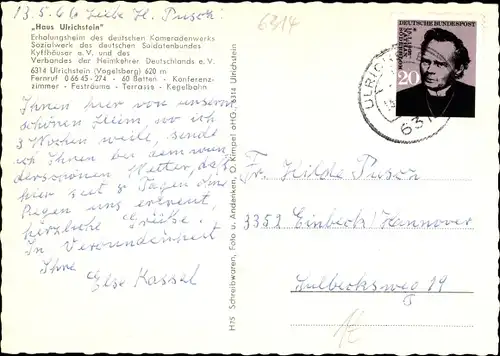 13.5.66 Liebe H. Pusch!
„Haus Ulrichstein"
Erholungsheim des deutschen Kameradenwerks
Sozialwerk des deutschen Soldatenbundes
Kyffhäuser e.V. und des
Verbandes der Heimkehrer Deutschlands e.V.
6314 Ulrichstein (Vogelsberg) 620 m
Fernruf 0 66 45 - 274 - 60 Betten - Konferenz-
zimmer - Festräume - Terrasse - Kegelbahn
Ihnen hier von unserm
schönen Heim, wo ich
3 Wochen weile, sende
ich Ihnen bei dem wun
derschönen Wetter, daß
hier seit 8 Tagen ohne
Regen uns erfreut,
herzliche Grüße.
In Verbundenheit
Ihre
Else Kassel
H75 Schreibwaren, Foto u. Andenken, O. Kimpel oHG., 6314 Ulrichstein
6314
DEUTSCHE BUNDESPOST
20
ULRICH
631
Fr. Hilde Pusch
3352 Einbeck/Hannover
Hullbecksweg 19